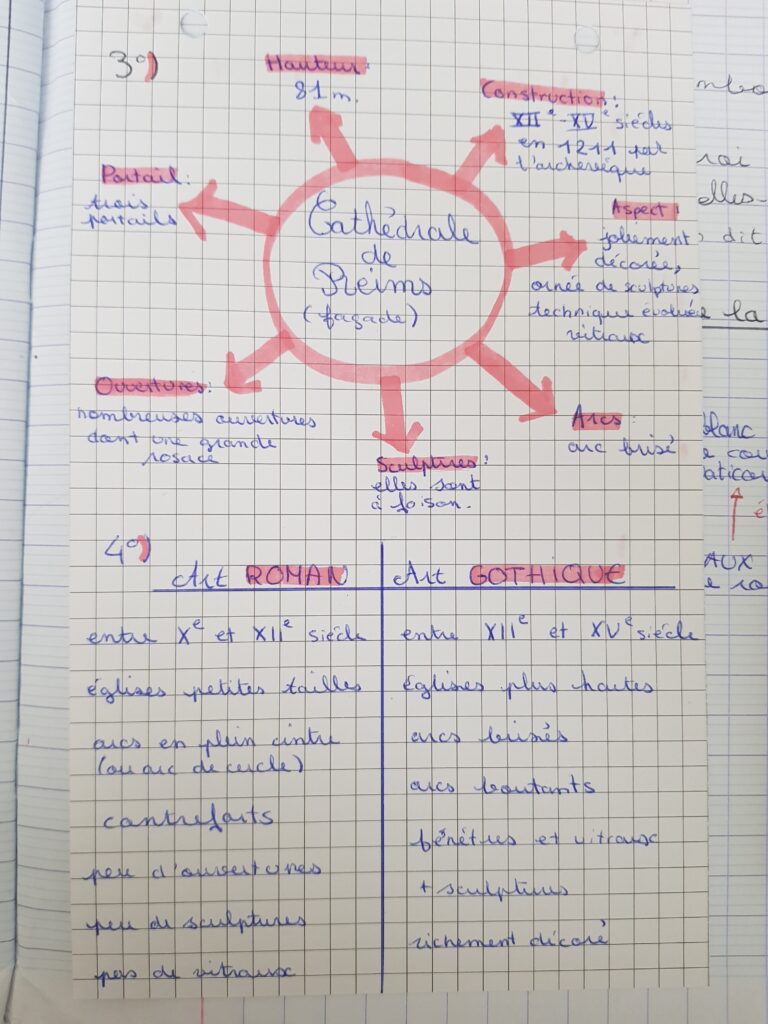 3°)
Hauteur:
81 m.
Construction:
XII e - XV e siécles
en 1211 par
l'archevêque
Portail:
trois
portails
Aspect:
joliement
décorée,
ornée de sculptures
technique évoluée
vitraux
Cathédrale
de
Reims
(façade)
Ouvertures:
nombreuses ouvertures
dont une grande
rosace
Sculptures:
elles sont
à foison.
Arcs:
arc brisé
4°)
Art ROMAN
Art GOTHIQUE
entre Xe et XIIe siécle
entre XIIe et XVe siécle
églises petites tailles
églises plus hautes
arcs en plein cintre
(ou arc de cercle)
arcs brisés
arcs boutants
contreforts
fénétres et vitraux
peu d'ouvertures
+ sculptures
peu de sculptures
richement décoré
pas de vitraux
roi
elles-
, dit
la
blanc
AUX